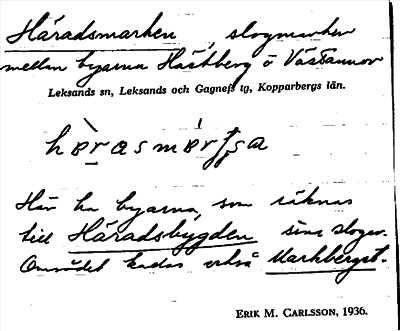 Häradsmarken, slogmarker
mellan byarna Hästberg o Västannor
Leksands sn, Leksands och Gagnefs tg, Kopparbergs län.
Här ha byarna, som räknas
till Häradsbygden sina slogar.
Området kallas också Markberget.
ERIK M. CARLSSON, 1936.